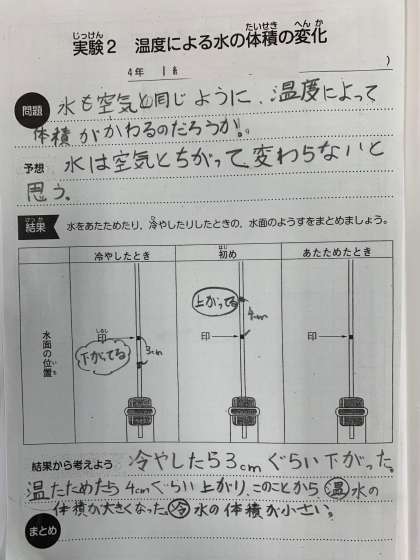 じっけん たいせき へん か
実験2 温度による水の体積の変化
4年 1組 )
問題 水も空気と同じように、温度によって
体積がかわるのだろうか。
予想 水は空気とちがって変わらないと
思う。
けっか ひ
結果 水をあたためたり、冷やしたりしたときの、水面のようすをまとめましょう。
冷やしたとき
はじ
初め
あたためたとき
水面の位置
いち
しるし
印
下がってる
3cm
上がってる
4cm
印
印
結果から考えよう 冷やしたら3cmぐらい下がった。
温たためたら4cmぐらい上がり、このことから温水の
体積が大きくなった。冷水の体積が小さい。
まとめ